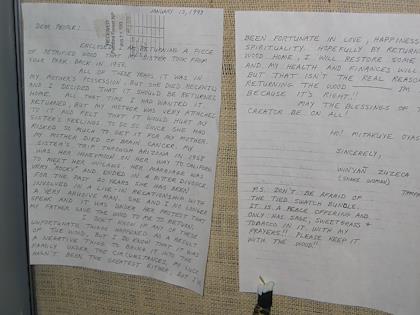 JANUARY 13, 1993
DEAR PEOPLE:
ENCLOSED I AM RETURNING A PIECE
OF PETRIFIED WOOD THAT MY SISTER TOOK FROM
YOUR PARK BACK IN 1958.
ALL OF THESE YEARS IT WAS IN
MY MOTHER'S POSSESSION, BUT SHE DIED RECENTLY
AND I DECIDED THAT IT SHOULD BE RETURNED
HOME. ALL THAT TIME I HAD WANTED IT
RETURNED, BUT MY MOTHER WAS VERY ATTACHED
TO IT AND FELT THAT IT WOULD HURT MY
SISTER'S FEELINGS TO DO SO SINCE SHE HAD
RISKED SO MUCH TO GET IT FOR MY MOTHER.
MY MOTHER DIED OF BRAIN CANCER. MY
SISTER'S TRIP THROUGH ARIZONA IN 1958
WAS HER HONEYMOON ON HER WAY TO CALIFORNIA
TO MEET HER INLAWS. HER MARRIAGE WAS
VERY ROCKY AND ENDED IN A BITTER DIVORCE.
FOR THE PAST 20 YEARS SHE HAS BEEN
INVOLVED IN A LIVE-IN RELATIONSHIP WITH
A VERY ABUSIVE MAN. SHE AND I DO NOT
SPEAK AND IT WAS UNDER MY MOTHER THAT
MY FATHER GAVE THE WOOD TO ME TO RETURN.
I DON'T KNOW IF ANY OF THESE
UNFORTUNATE THINGS HAPPENED AS A RESULT
OF THE WOOD, BUT I DO KNOW THAT IT WAS
A NEGATIVE THING TO BRING IT INTO THE
FAMILY UNDER THE CIRCUMSTANCES. MY LUCK
HASN'T BEEN THE GREATEST EITHER, BUT I'VE
BEEN FORTUNATE IN LOVE, HAPPINESS
SPIRITUALITY. HOPEFULLY BY RETURN
WOOD HOME, I WILL RESTORE SOME
AND MY HEALTH AND FINANCES WILL
BUT THAT ISN'T THE REAL REASON
RETURNING THE WOOD I'M
BECAUSE IT'S RIGHT!!
MAY THE BLESSINGS OF
CREATOR BE ON ALL!
HO! MITAKUYE OYAS
SINCERELY,
WINYAN ZUZECA
(SNAKE WOMAN)
P.S. DON'T BE AFRAID OF
THE TIED SWATCH BUNDLE.
IT IS A PEACE OFFERING AND
ONLY HAS SAGE, SWEETGRASS &
TOBACCO IN IT WITH MY
PRAYERS!! PLEASE KEEP IT
WITH THE WOOD!!